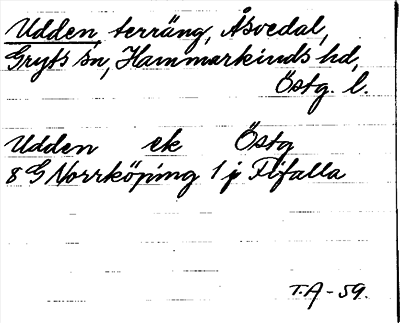 Udden, terräng, Åsvedal,
Gryts sn, Hammarkinds hd,
Östg. l.
Udden ek Östg
8 G Norrköping 1 j Flifalla
T.A-59.